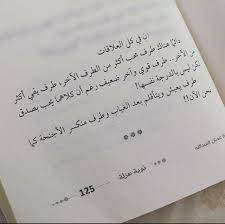 ان في كل العلاقات
دائما هناك طرف يحب أكثر من الطرف الآخر، طرف يعني أكثر
من الآخر.. طرف قوي وآخر ضعيف رغم أن كلاهما يحب بصدق
لكن ليس بالدرجة نفسها!
طرف يعيش ويتأقلم بعد الغياب وطرف منكسر الأجنحة كما
نحن الآن!!
***
125